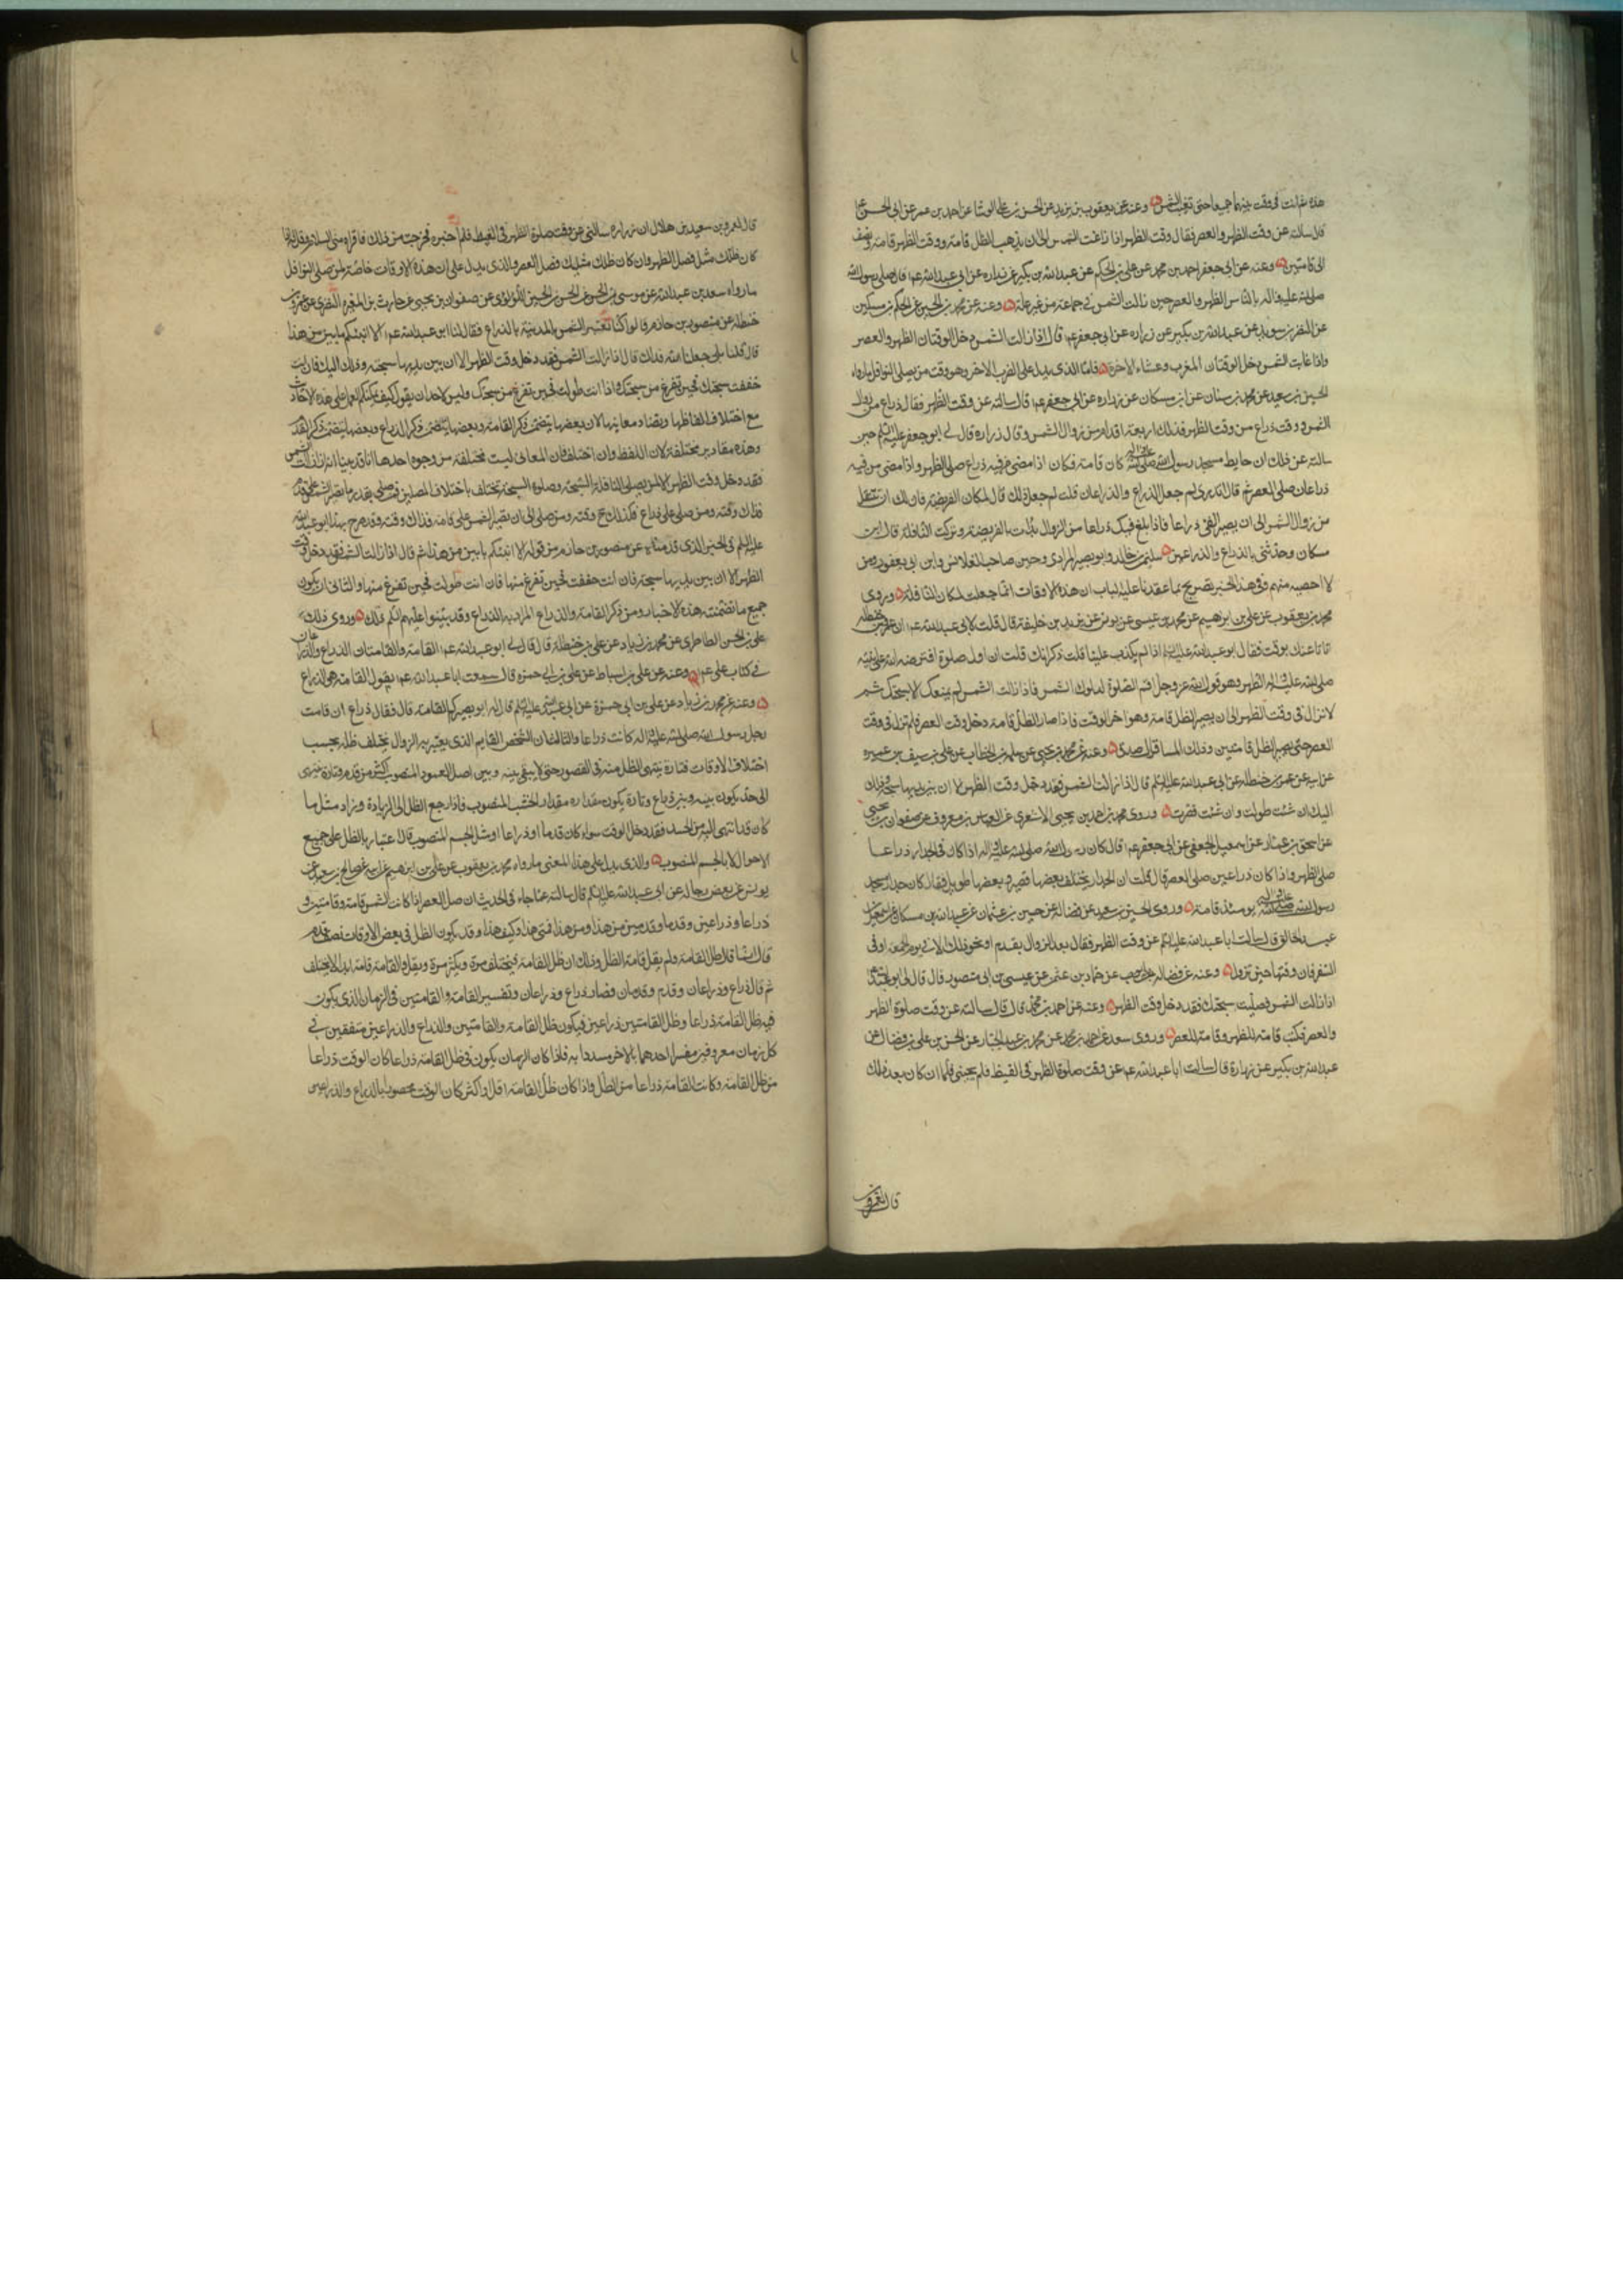 هذه ثم انت فى وقت منهما جميعا حتى تغيب الشمس وعنه عن يعقوب بن يزيد عن الحسن بن على الوشا عن احمد بن عمر عن ابى الحسن عم
قال سالته عن وقت الظهر والعصر فقال وقت الظهر اذا زاغت الشمس الى ان يذهب الظل قامة ووقت الظهر قامة ونصف
الى قامتين وعنه عن ابى جعفر احمد بن محمد عن على بن الحكم عن عبد الله بن بكير عن زراره عن ابى عبد الله عم قال صلى رسول الله
صلى الله عليه واله بالناس الظهر والعصر حين زالت الشمس فى جماعة من غير علة وعنه عن محمد بن الحسين عن الحكم بن مسكين
عن النضر بن سويد عن عبد الله بن بكير عن زراره عن ابى جعفر عم قال اذا زالت الشمس دخل الوقتان الظهر والعصر
واذا غابت الشمس دخل الوقتان المغرب وعشاء الاخرة فاما الذى يدل على الضرب الاخر وهو وقت من يصلى النوافل مارواه
الحسين بن سعيد عن محمد بن سنان عن ابن مسكان عن زراره عن ابى جعفر عم قال سالته عن وقت الظهر فقال ذراع من زوال
الشمس ووقت ذراع من وقت الظهر فذلك اربعة اقدام من زوال الشمس وقال زراره قال لى ابو جعفر عليه السلم حين
سالته عن ذلك ان حايط مسجد رسول الله صلى الله عليه واله كان قامة فكان اذا مضى من فيه ذراع صلى الظهر واذا مضى من فيه
ذراعان صلى العصر ثم قال اتدرى لم جعل الذراع والذراعان قلت لم جعل ذلك قال لمكان الفريضة فان لك ان تتنفل
من زوال الشمس الى ان يصير الفئ ذراعا فاذا بلغ فيئك ذراعا من الزوال بدات بالفريضة وتركت النافلة قال ابن
مسكان وحدثنى بالذراع والذراعين سليمن بن خالد وابو بصير المرادى وحسين صاحب القلانس وابن ابى يعفور ومن
لا احصيه منهم وفى هذا الخبر تصريح بما عقدنا عليه الباب ان هذه الاوقات انما جعلت لمكان النافلة وروى
محمد بن يعقوب عن على بن ابرهيم عن محمد بن عيسى عن يونس عن يزيد بن خليفة قال قلت لابى عبد الله عم ان عمر بن حنظلة
اتانا عنك بوقت فقال ابو عبد الله عليه السلم اذا لم يكذب علينا قلت ذكر انك قلت ان اول صلوة افترضه الله على نبيه
صلى الله عليه واله الظهر وهو قول الله عز وجل اقم الصلوة لدلوك الشمس فاذا زالت الشمس لم يمنعك الا سبحتك ثم
لا تزال فى وقت الظهر الى ان يصير الظل قامة وهو اخر الوقت فاذا صار الظل قامة دخل وقت العصر فلم تزل فى وقت
العصر حتى يصير الظل قامتين وذلك المسا قال صدق وعنه عن محمد بن يحيى عن سلمة بن الخطاب عن على بن سيف بن عميره
عن ابيه عن عمر بن حنظلة عن ابى عبد الله عليه السلم قال اذا زالت الشمس فقد دخل وقت الظهر الا ان بين يديها سبحة وذلك
اليك ان شئت طولت وان شئت قصرت وروى محمد بن احمد بن يحيى الاشعرى عن العباس بن معروف عن صفوان بن يحيى
عن اسحق بن عمار عن اسمعيل الجعفى عن ابى جعفر عم قال كان رسول الله صلى الله عليه واله اذا كان فى الجدار ذراعا
صلى الظهر واذا كان ذراعين صلى العصر قال قلت ان الجدار يختلف بعضها قصير وبعضها طويل فقال كان جدار مسجد
رسول الله صلى الله عليه واله يومئذ قامة وروى الحسين بن سعيد عن فضالة عن حسين بن عثمان عن عبد الله بن مسكان عن اسمعيل بن
عبد الخالق قال سالت ابا عبد الله عليه السلم عن وقت الظهر فقال بعد الزوال بقدم او نحو ذلك الا فى يوم الجمعة او فى
السفر فان وقتها حين تزول وعنه عن فضاله عن حماد بن عثمن عن عيسى بن ابى منصور قال قال لى ابو عبد الله
اذا زالت الشمس فصليت سبحتك فقد دخل وقت الظهر وعنه عن احمد بن محمد قال سالته عن وقت صلوة الظهر
والعصر فكتب قامة للظهر وقامة للعصر وروى سعد عن احمد بن محمد عن محمد بن عبد الجبار عن الحسن بن على بن فضال عن
عبد الله بن بكير عن زرارة قال سالت ابا عبد الله عم عن وقت صلوة الظهر فى القيظ فلم يجبنى فلما ان كان بعد ذلك
قال لعمرو بن
قال لعمرو بن سعيد بن هلال ان زراره سالنى عن وقت صلوة الظهر فى القيظ فلم اخبره فحرجت من ذلك فاقراه منى السلام وقل له اذا
كان ظلك مثلك فصل الظهر وان كان ظلك مثليك فصل العصر والذى يدل على ان هذه الاوقات خاصة لمن صلى النوافل
مارواه سعد بن عبد الله عن موسى بن الحسن عن الحسن بن الحسين اللؤلؤى عن صفوان بن يحيى عن حارث بن المغيره النضرى عن عمر بن
حنظلة عن منصور بن حازم قالوا كنا نعتبر الشمس بالمدينة بالذراع فقال لنا ابو عبد الله عم الا انبئكم بابين من هذا
قال قلنا بلى جعلنا الله فداك قال اذا زالت الشمس فقد دخل وقت الظهر الا ان بين يديها سبحة وذلك اليك فان انت
خففت سبحتك فحين تفرغ من سبحتك واذا انت طولت فحين تفرغ من سبحتك وليس لاحد ان يقول كيف يمكنكم العمل على هذه الاخبار
مع اختلاف الفاظها وتضاد معانيها لان بعضها يتضمن ذكر القامة وبعضها يتضمن ذكر الذراع وبعضها يتضمن ذكر القدم
وهذه مقادير مختلفة لان اللفظ وان اختلف فان المعانى ليست مختلفة من وجوه احدها انا قد بينا انه اذا زالت الشمس
فقد دخل وقت الظهر الا لمن يصلى النافلة السبحة وصلوة السبحة تختلف باختلاف المصلين فمن صلى بقدر ما تصير الشمس على قدم
فذاك وقته ومن صلى على ذراع فكذلك وقته ومن صلى الى ان تصير الشمس على قامة فذاك وقته وقد صرح بهذا ابو عبد الله
عليه السلم فى الخبر الذى قدمناه عن منصور بن حازم من قوله الا انبئكم بابين من هذا ثم قال اذا زالت الشمس فقد دخل وقت
الظهر الا ان بين يديها سبحة فان انت خففت فحين تفرغ منها فان انت طولت فحين تفرغ منها والثانى ان يكون
جميع ما تضمنت هذه الاخبار ومن ذكر القامة والذراع المراد به الذراع وقد بينوا عليهم السلم ذلك وروى ذلك
على بن الحسن الطاطرى عن محمد بن زياد عن على بن حنظلة قال قال لى ابو عبد الله عم القامة والقامتان الذراع والذراعان
فى كتاب على عم وعنه عن على بن اسباط عن على بن ابى حمزه قال سمعت ابا عبد الله عم يقول القامة هى الذراع
وعنه عن محمد بن زياد عن على بن ابى حمزة عن ابى عبد الله عليه السلم قال له ابو بصير كم القامة قال فقال ذراع ان قامت
رحل رسول الله صلى الله عليه واله كانت ذراعا والثالث ان الشخص القايم الذى يعتبر به الزوال يختلف ظله بحسب
اختلاف الاوقات فتارة ينتهى الظل منه فى القصور حتى لا يبقى بينه وبين اصل العمود المنصوب اكثر من قدم وتارة ينتهى
الى حد يكون بينه وبينه ذراع وتارة يكون مقداره مقدار الخشب المنصوب فاذا رجع الظل الى الزيادة وزاد مثل ما
كان قد انتهى اليه من الحد فقد دخل الوقت سواء كان قدما او ذراعا او مثل الجسم المنصوب قال عتبار بالظل على جميع
الاحوال لا بالجسم المنصوب والذى يدل على هذا المعنى مارواه محمد بن يعقوب عن على بن ابرهيم عن ابيه عن صالح بن سعيد عن
يونس عن بعض رجاله عن ابى عبد الله عليه السلم قال سالته عما جاء فى الحديث ان صل العصر اذا كانت الشمس قامة وقامتين و
ذراعا وذراعين وقدما وقدمين من هذا ومن هذا فمتى هذا وكيف هذا وقد يكون الظل فى بعض الاوقات نصف قدم
قال انما قال ظل القامة ولم يقل قامة الظل وذلك ان ظل القامة يختلف مرة ويكثر مرة ويقل والقامة قامة ابدا لا يختلف
ثم قال ذراع وذراعان وقدم وقدمان فصار ذراع وذراعان وتفسير القامة والقامتين فى الزمان الذى يكون
فيه ظل القامة ذراعا وظل القامتين ذراعين فيكون ظل القامة والقامتين والذراع والذراعين متفقين فى
كل زمان معروفين مفسرا احدهما بالاخر مسددا به فاذا كان الزمان يكون فى ظل القامة ذراعا كان الوقت ذراعا
من ظل القامة وكانت القامة ذراعا من الظل واذا كان ظل القامة اقل او اكثر كان الوقت محصورا بالذراع والذراعين